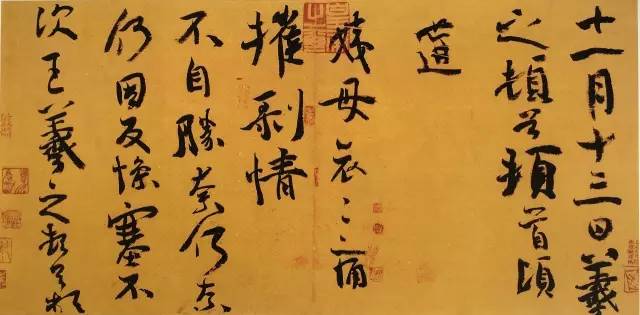 十一月十三日羲
之頓首頓首頃
姨母哀〻痛
摧剝情
不自勝奈何奈
何因反慘塞不
次王羲之頓首頓